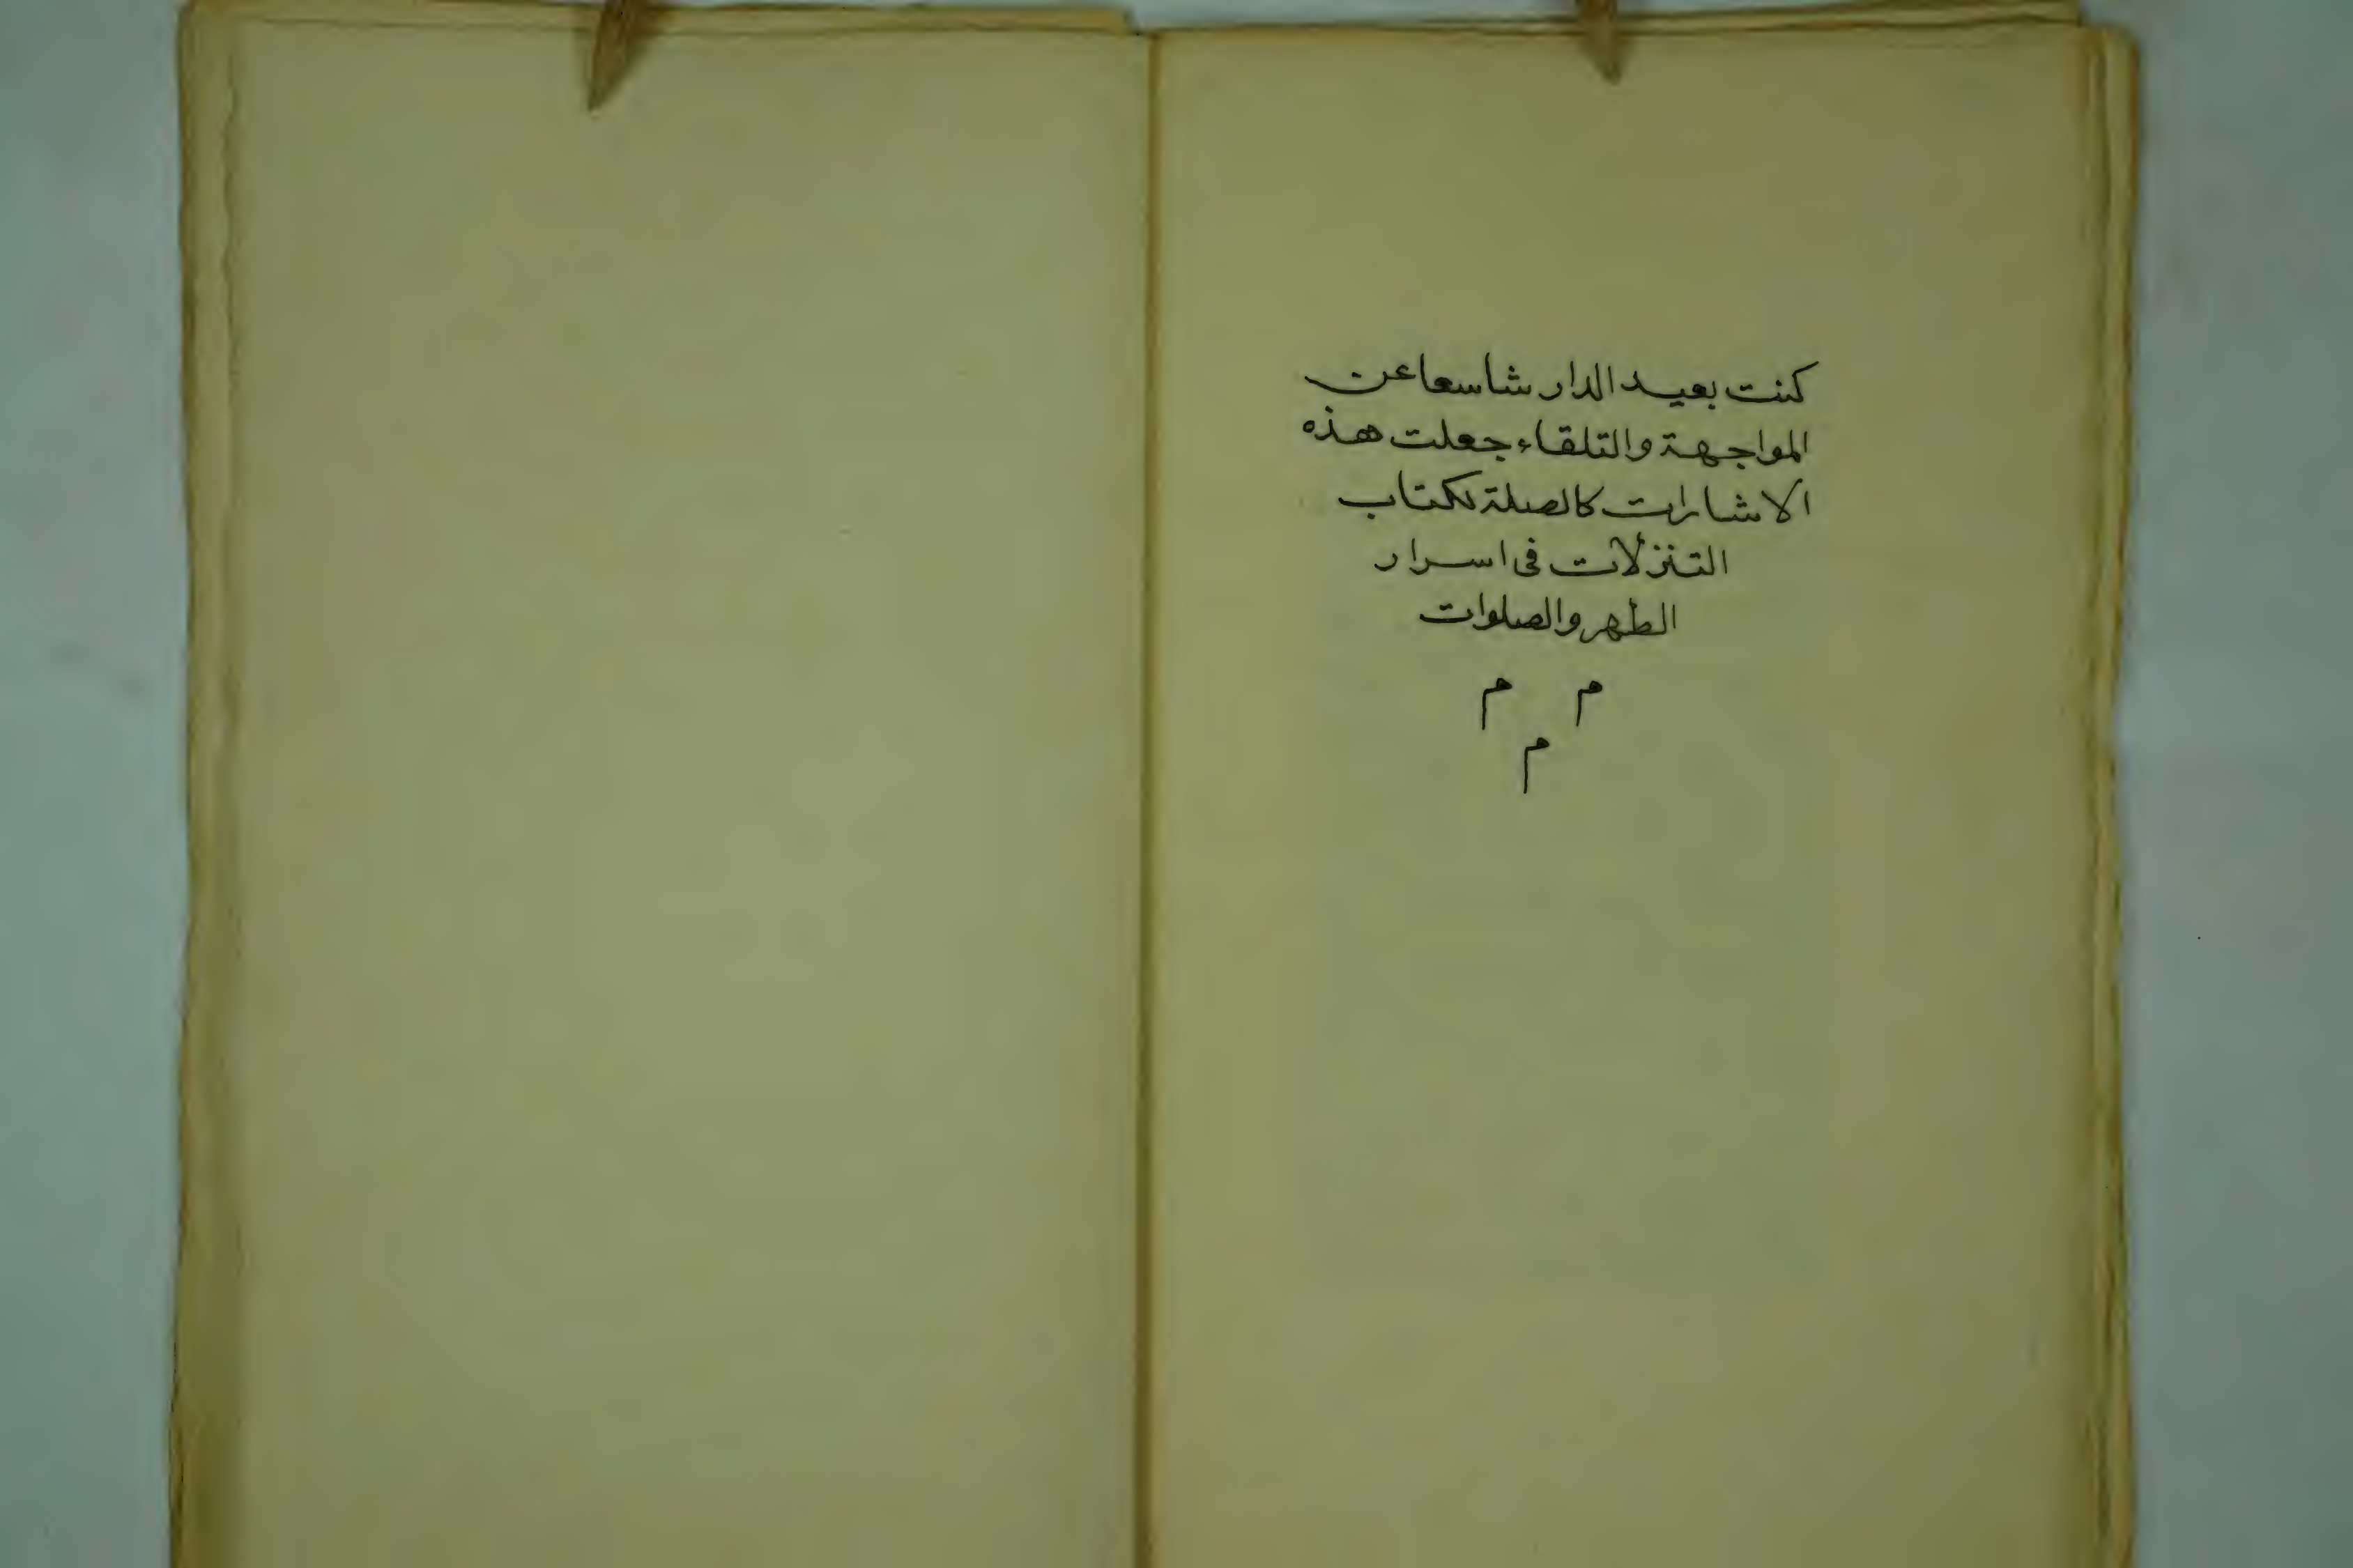 كنت بعيد الدار شاسعا عن
المواجهة والتلقاء جعلت هذه
الاشارات كالصلة لكتاب
التنزلات فى اسرار
الطهر والصلوات
م م
م